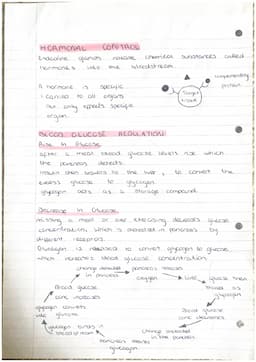 HORMONAL CONTROL
Endocrine glands release chemical substances called
hormones into the bloodstream.
A hormone is specific
carried to all organs
but only effects specific
organ.
complementary
protein
Target
tissue
BLOOD GLUCOSE REGULATION
Rise in Glucose
after a meal blood glucose levels rise which
the pancreas detects
insulin then travels to the liver, to convert the
excess glucose to glycogen
glycogen acts as a storage compound
Decrease in Glucose
missing a meal or over exercising decreases glucose
concentration which is detected in pancreas by
different receptors.
Glucagon is released to convert glycogen to glucose
which increases blood glucose concentration
change detected
pancreas releases
liver
glucose then
stored as
glycogen
Blood glucose
conc increases
Blood glucose
conc decreases
glycogen converts
into glucose
change detected
in the pancreas
glucagon
pancreas releases
glucagon